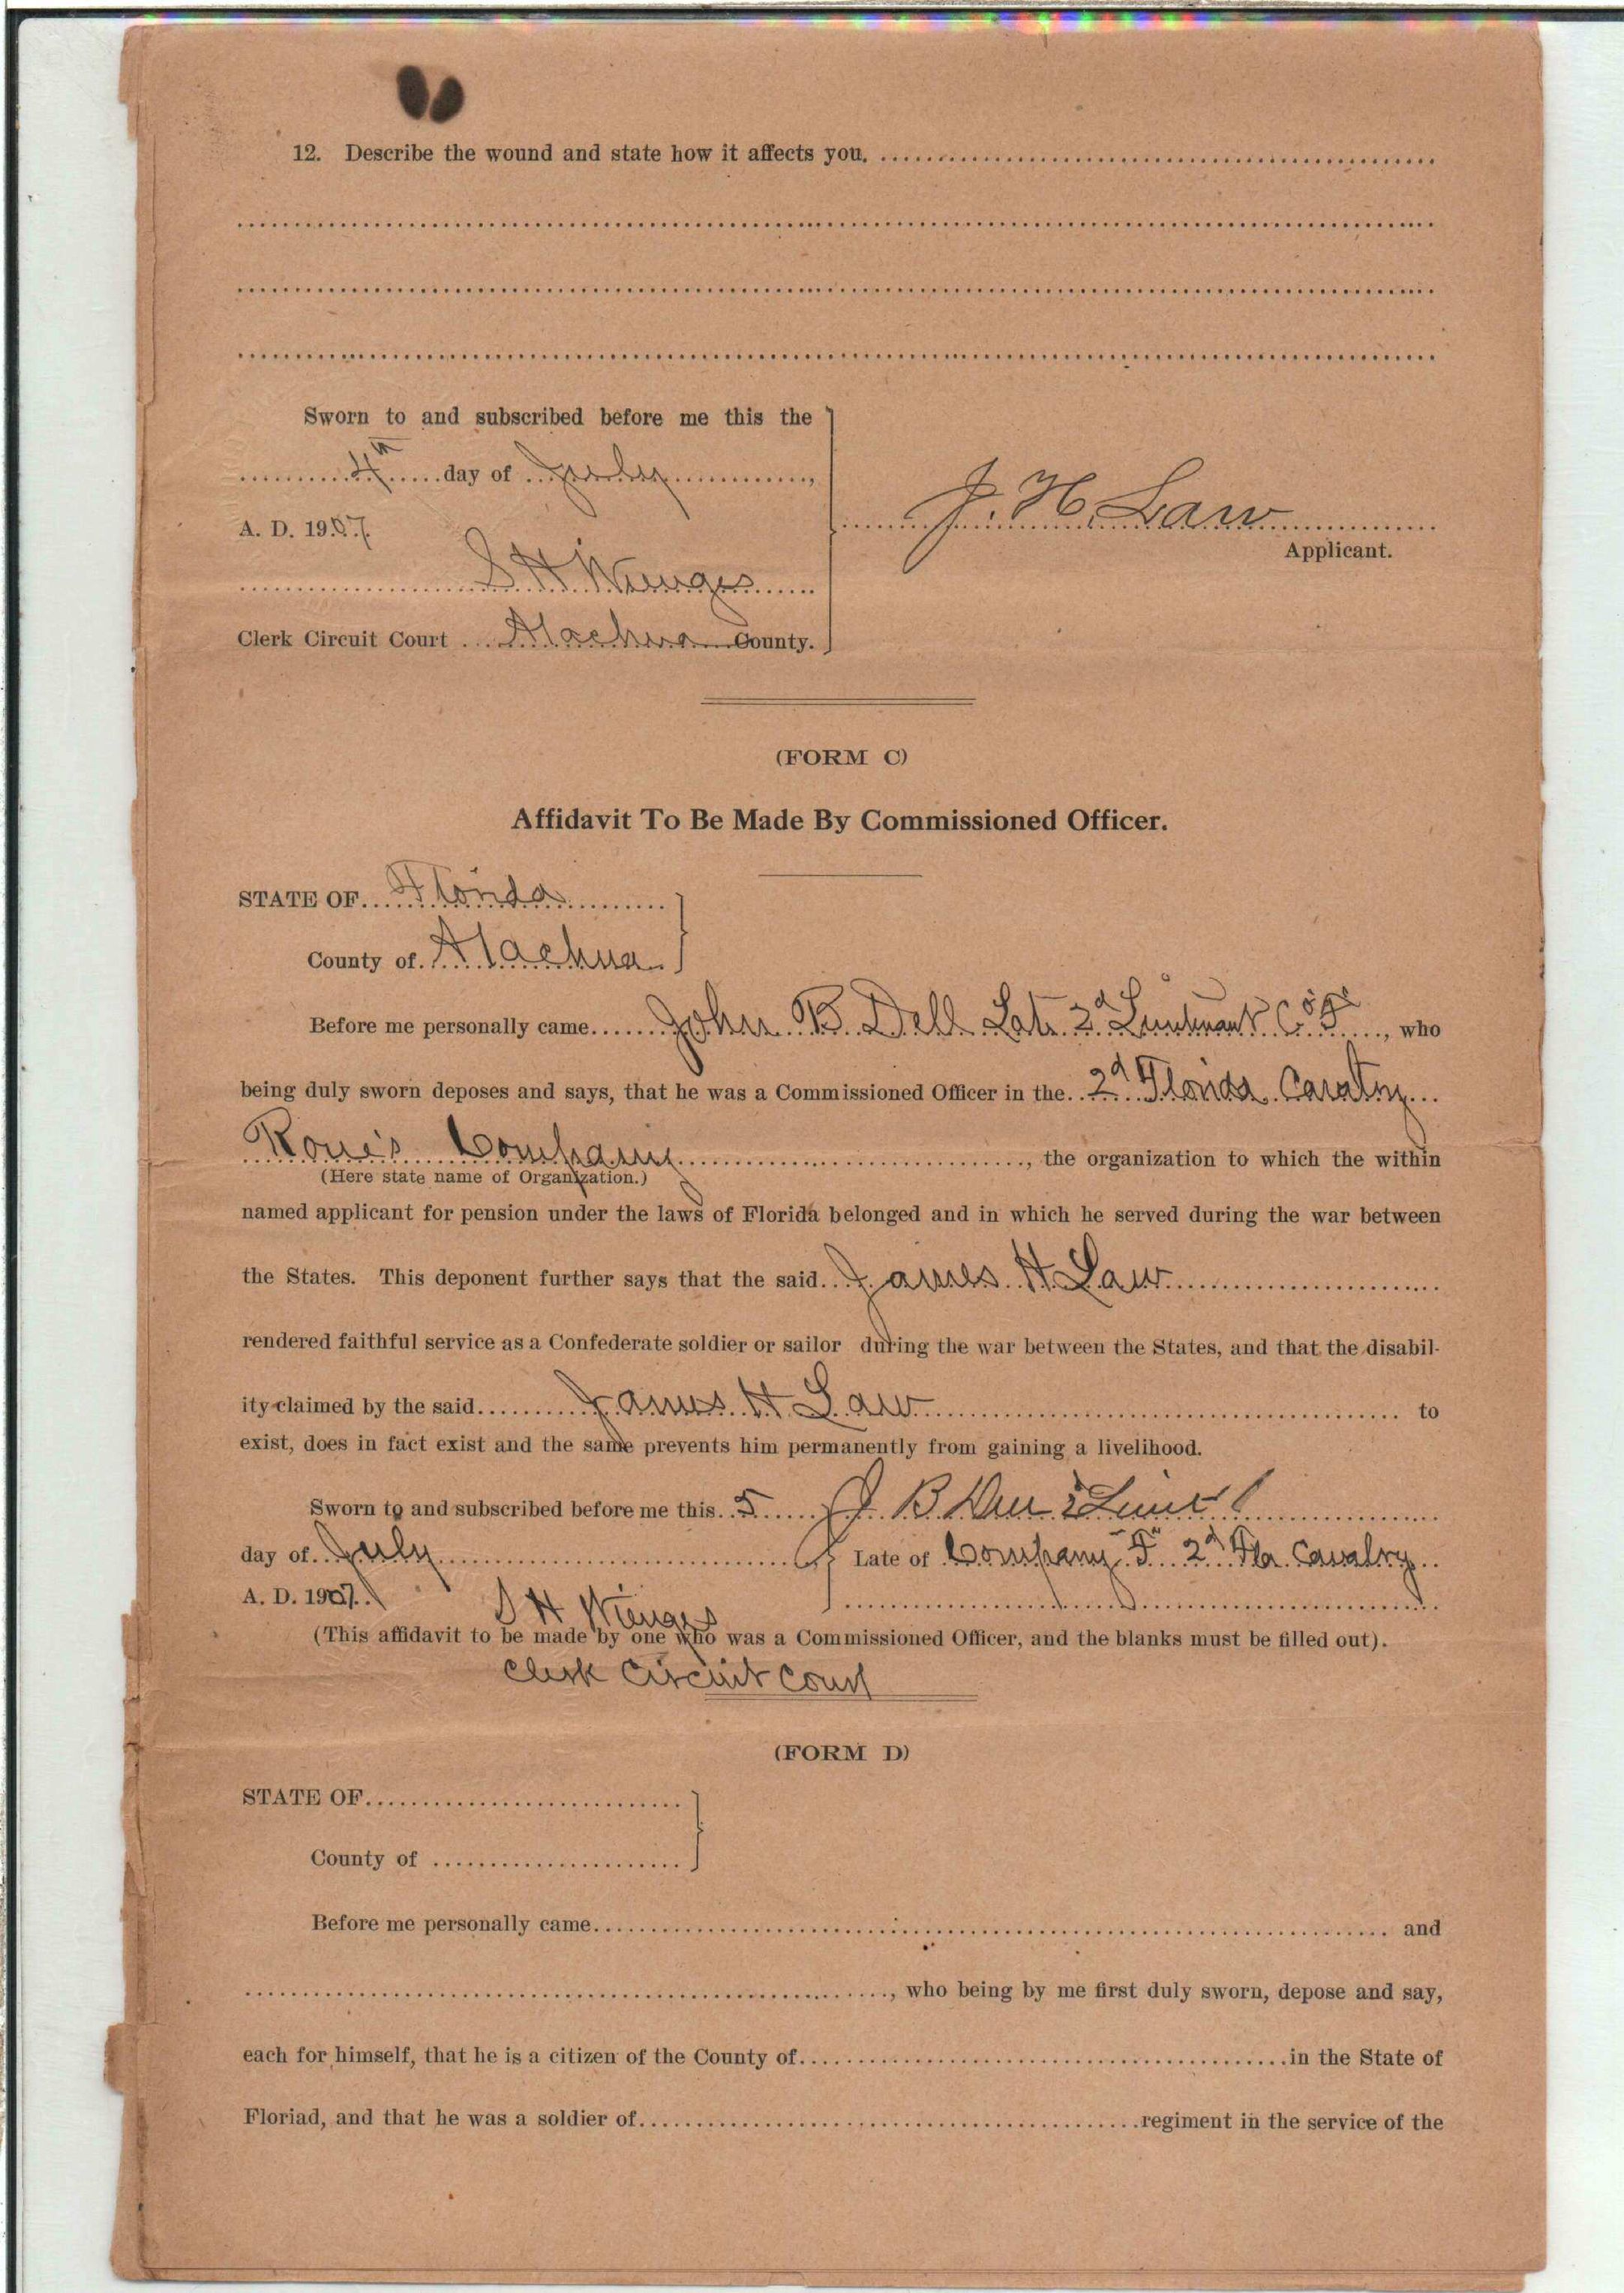 12. Describe the wound and state how it affects you.
Sworn to and subscribed before me this the
4th day of July,
A. D. 1907.
J. H. Law
Applicant.
S H Wienges
Clerk Circuit Court Alachua County.
(FORM C)
Affidavit To Be Made By Commissioned Officer.
STATE OF Florida
County of Alachua
Before me personally came John B. Dell Late 2d Lieutenant Co F, who
being duly sworn deposes and says, that he was a Commissioned Officer in the 2d Florida Cavalry
Company, the organization to which the within
(Here state name of Organization.)
named applicant for pension under the laws of Florida belonged and in which he served during the war between
the States. This deponent further says that the said James H Law
rendered faithful service as a Confederate soldier or sailor during the war between the States, and that the disabil-
ity claimed by the said James H Law to
exist, does in fact exist and the same prevents him permanently from gaining a livelihood.
Sworn to and subscribed before me this 5 J. B. Dell 2 Lieut
day of July Late of Company F 2d Fla. Cavalry
A. D. 1907.
S H Wienges
(This affidavit to be made by one who was a Commissioned Officer, and the blanks must be filled out).
Clerk Circuit Court
(FORM D)
STATE OF
County of
Before me personally came and
, who being by me first duly sworn, depose and say,
each for himself, that he is a citizen of the County of in the State of
Floriad, and that he was a soldier of regiment in the service of the